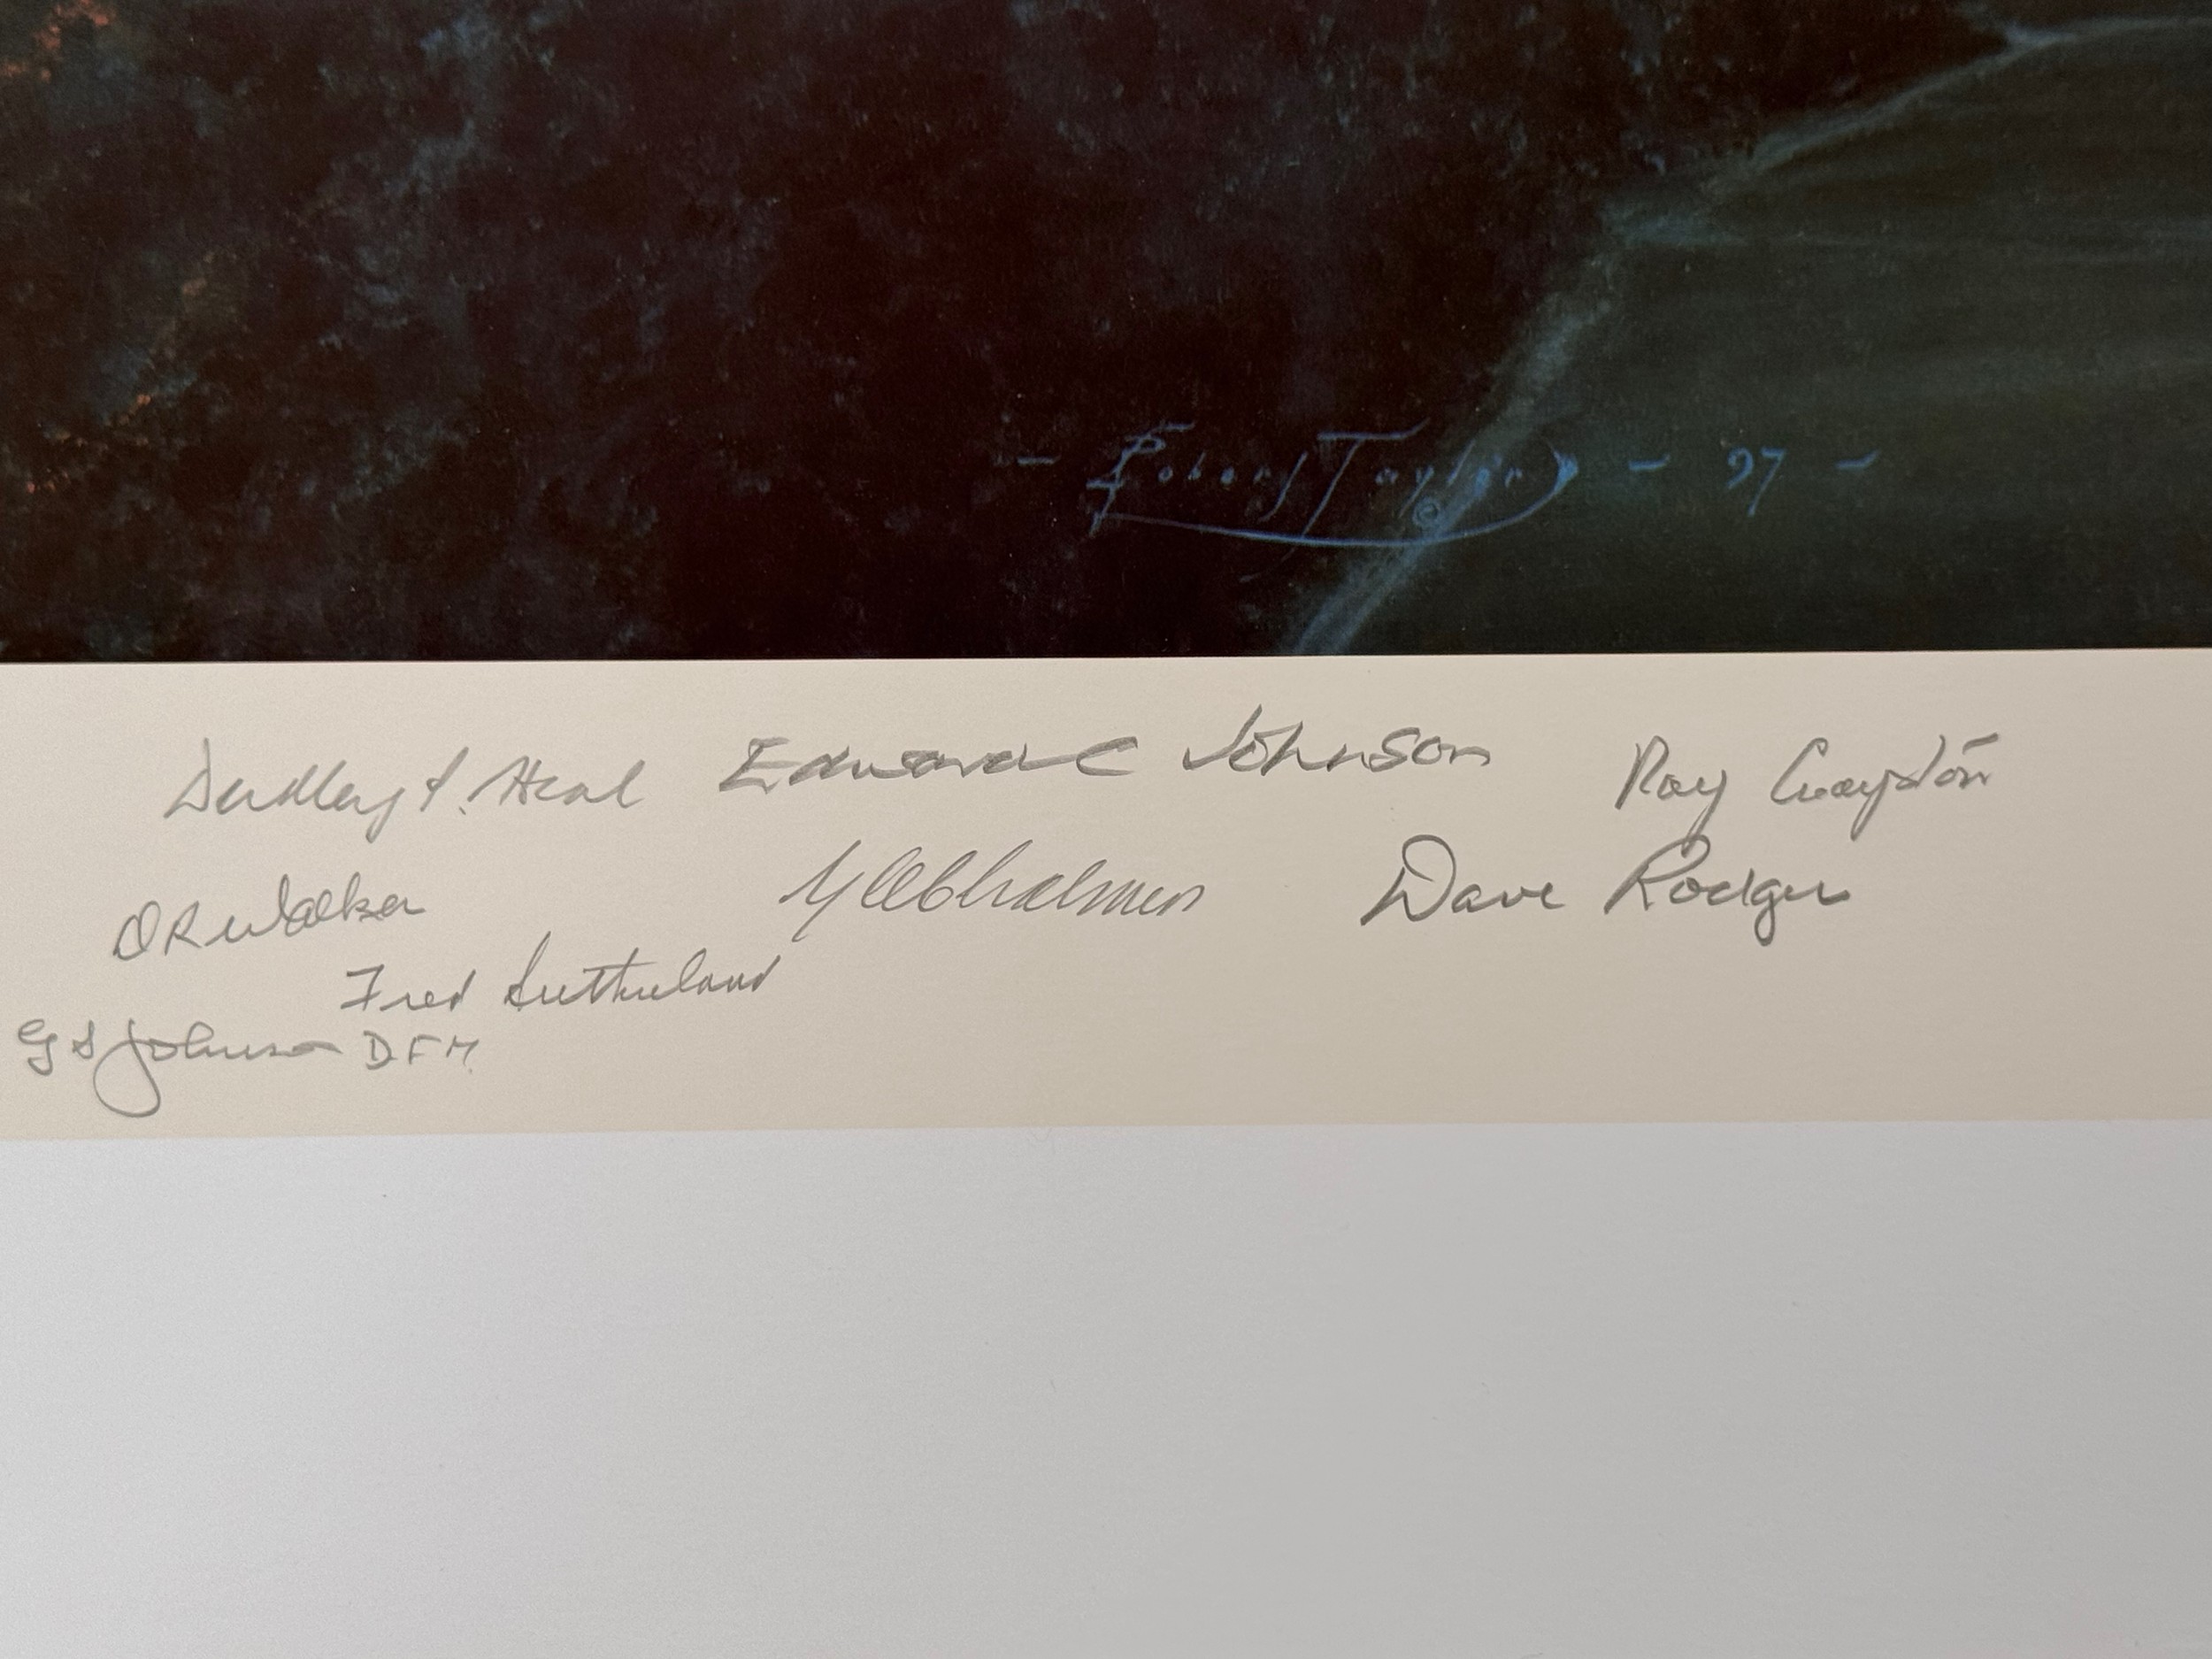 - Robert Taylor - 97 -
Dudley P. Heal Edward Johnson Ray Grayston
D R Walker Dave Rodger
Fred Sutherland
G L Johnson DFM